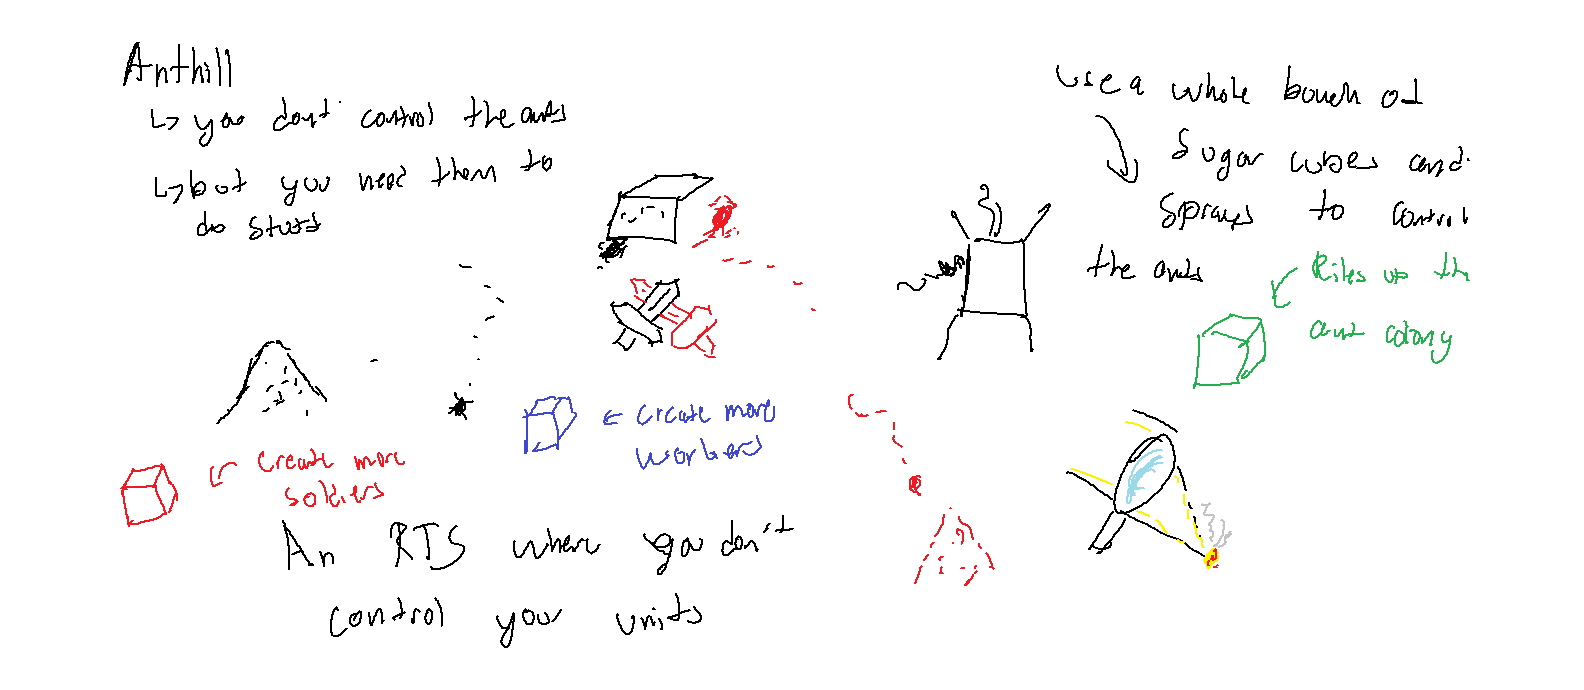 Anthill
↳ you dont control the ants
↳ but you need them to
do stuff
use a whole bunch of
sugar cubes and
sprays to control
the ants
Riles up th
ant colony
create more
workers
create more
soldiers
An RTS where you don't
control your units